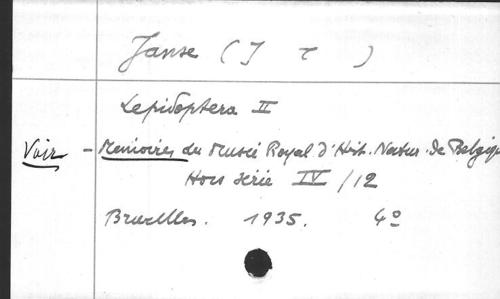 Janse (J τ )
Lepidoptera II
Voir - Memoires du Musée Royal d'Hist. Natur. de Belgique
Hors Série IV / 12
Bruxelles. 1935. 4º